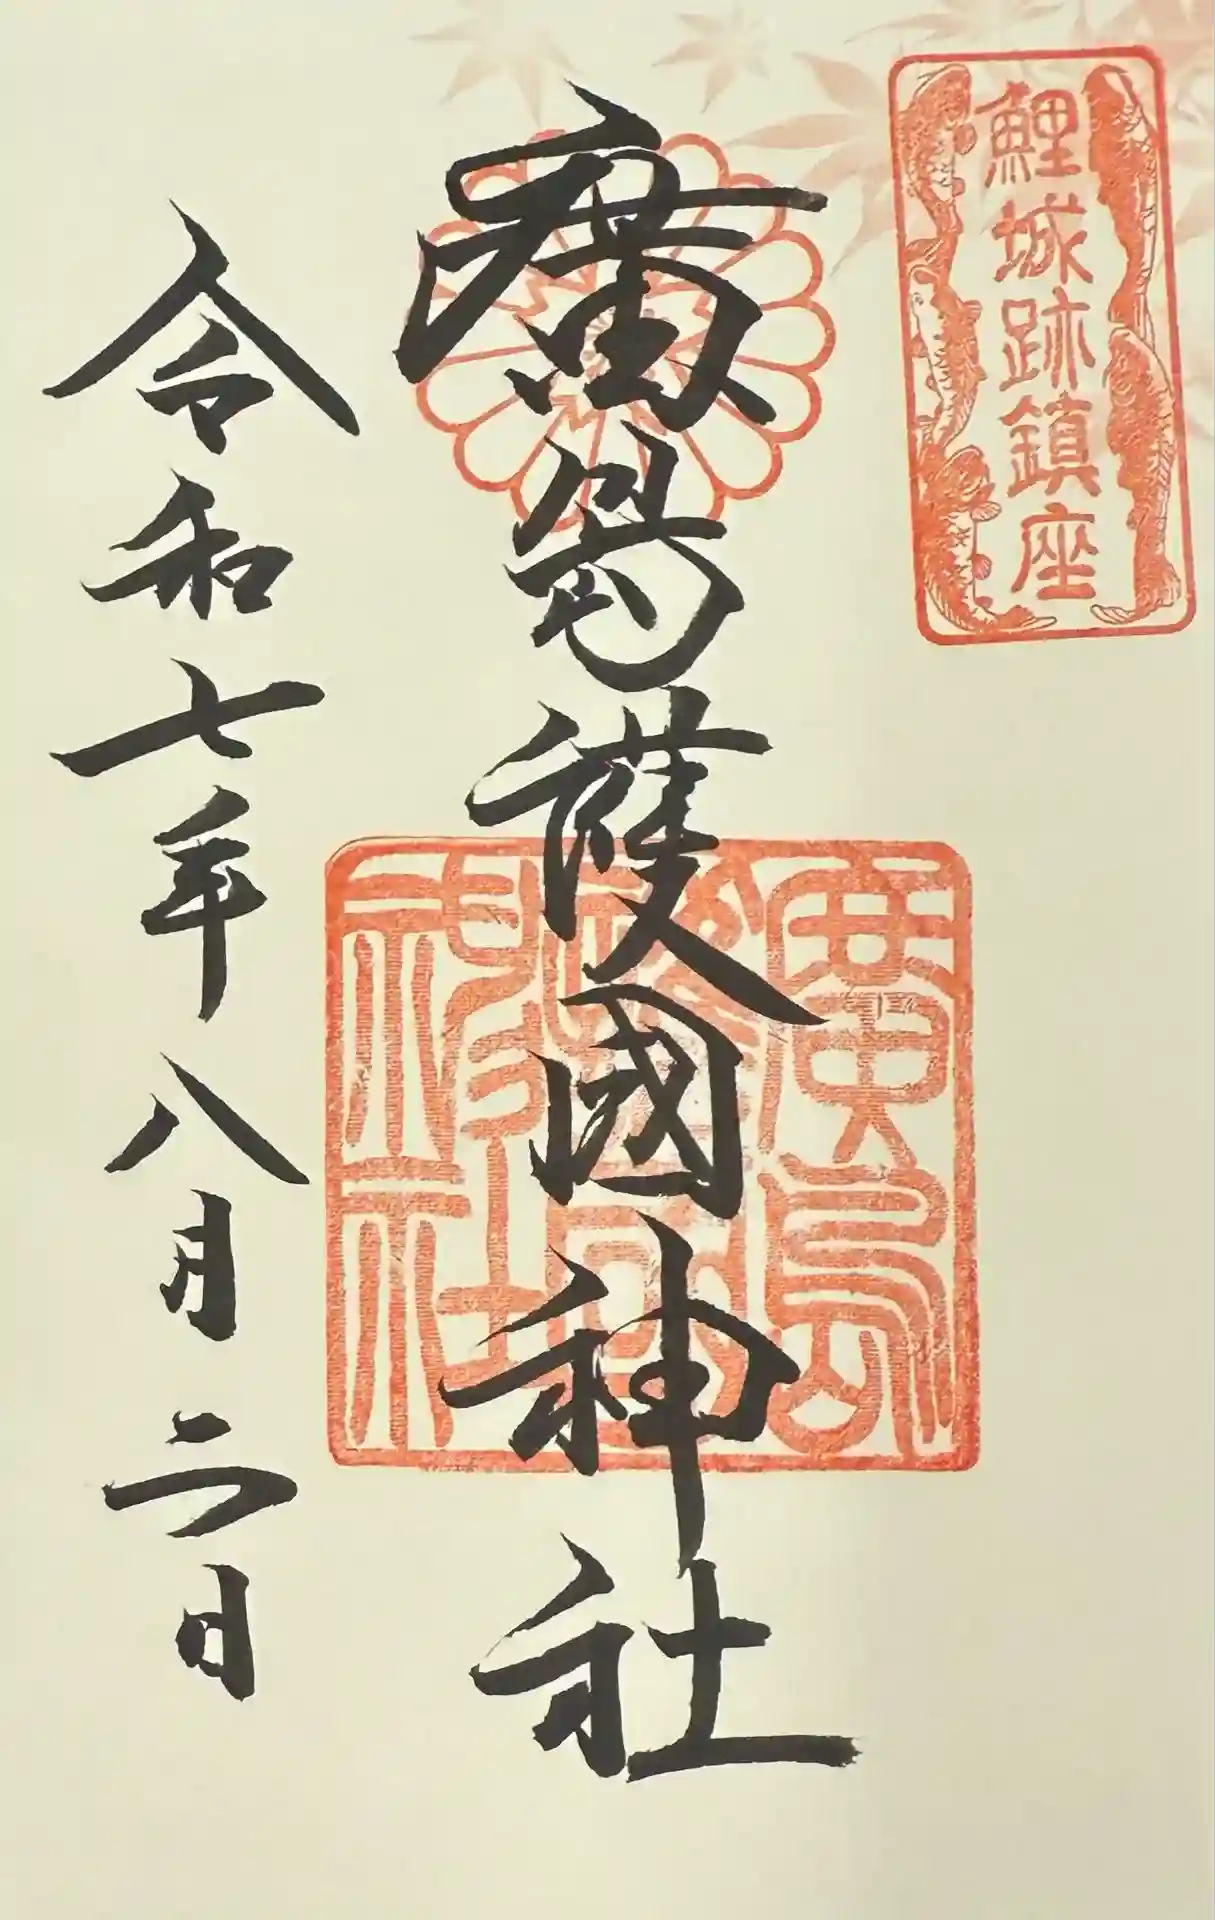 鯉城跡鎮座
廣島護國神社
廣島
護國
神社
令和七年八月二日